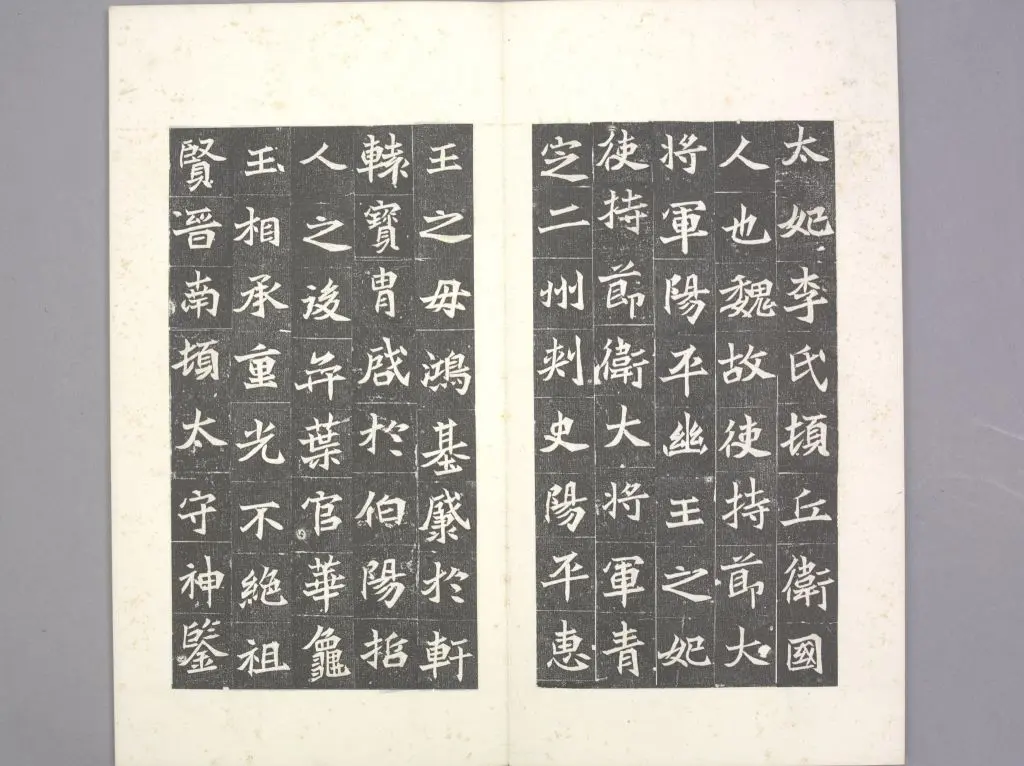 太妃李氏頓丘衛國
人也魏故使持節大
將軍陽平幽王之妃
使持節衛大將軍青
定二州刺史陽平惠
王之母鴻基肇於軒
轅寶胄啓於伯陽招
人之後弈葉官華龜
玉相承重光不絶祖
賢晉南頓太守神鑒